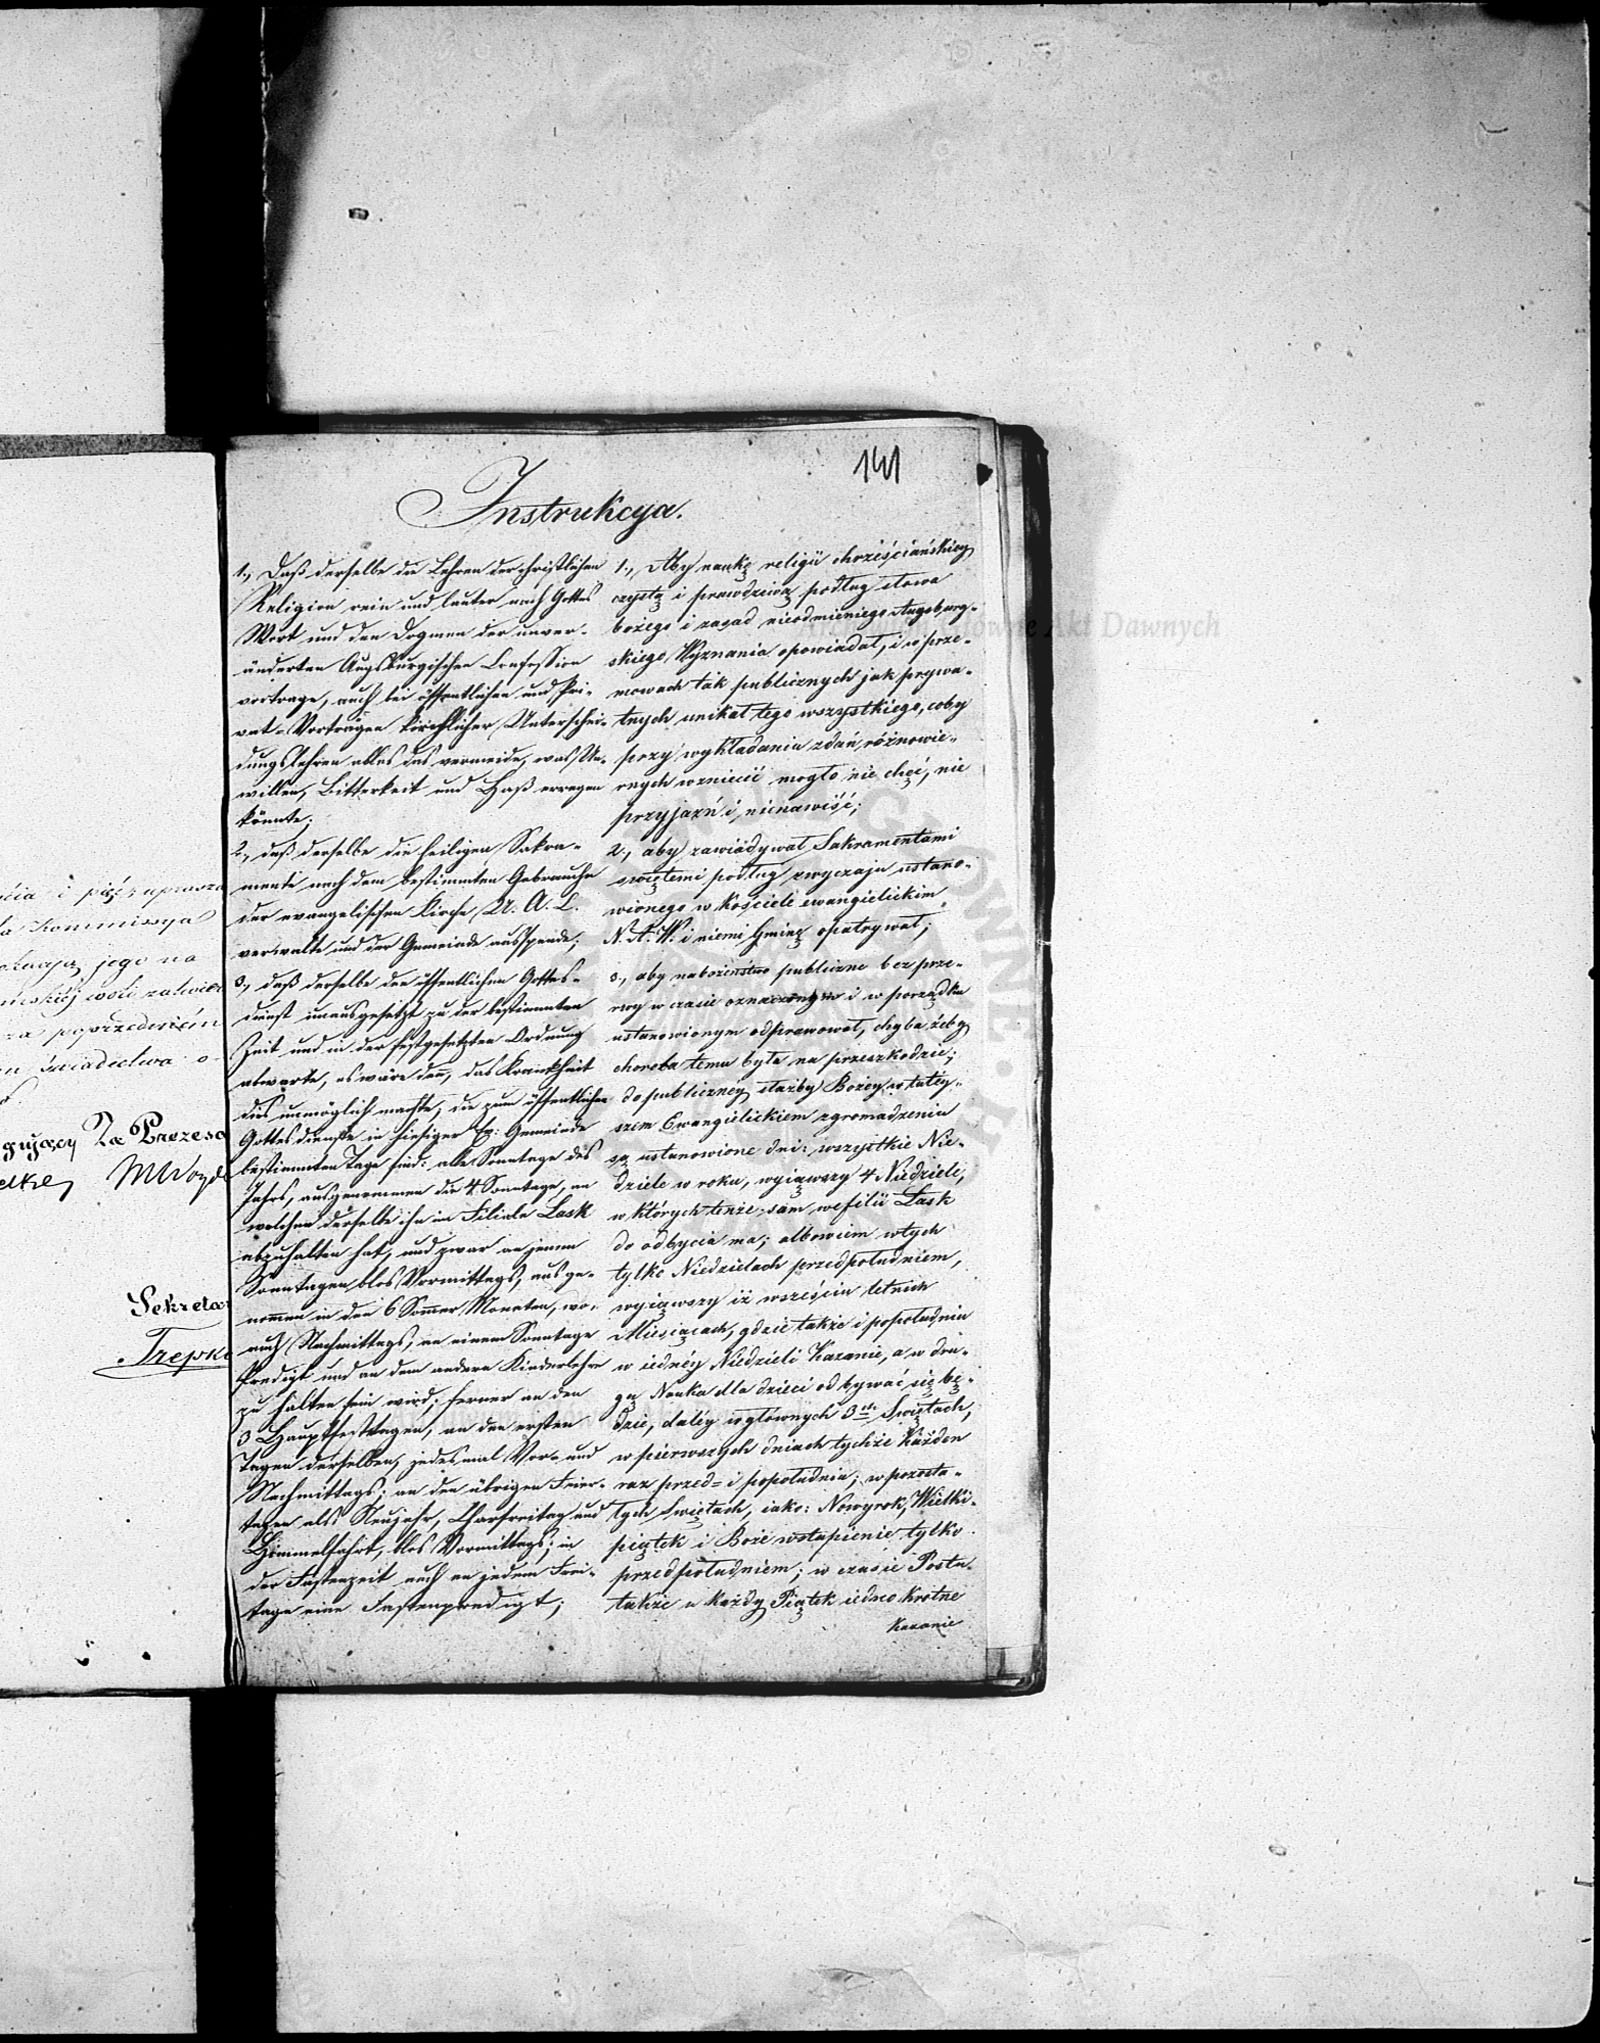 141
Instrukcya.
1., Daß derselbe die Lehren der christlichen
Religion rein und lauter nach Gottes
Wort und den Dogmen der unver-
änderten Augsburgischen Confession
vortrage, auch bei öffentlichen und Pri-
vat-Vorträgen kirchlicher Unterschei-
dungslehren alles das vermeide, was Un-
willen, Bitterkeit und Haß erregen
könnte;
2., daß derselbe die heiligen Sakra-
mente nach dem bestimmten Gebrauche
der evangelischen Kirche U. A. C.
verwalte und der Gemeinde ausspende;
3., daß derselbe den öffentlichen Gottes-
dienst unausgesetzt zu der bestimmten
Zeit und in der festgesetzten Ordnung
abwarte, es wäre den, das Krankheit
dies unmöglich machte, die zum öffentlichen
Gottesdienste in hiesiger Ev: Gemeinde
bestimmten Tage sind: alle Sonntage des
Jahrs, ausgenommen die 4 Sonntage, an
welchen derselbe ihn im Filiale Lask
abzuhalten hat, und zwar an jenen
Sonntagen blos Vormittags, ausge-
nomen in den 6 Somer Monaten, wo
auch Nachmittags, an einem Sonntage
Predigt und an dem andern Kinderlehre
zu halten sein wird; ferner an den
3 Hauptfesttagen, an den ersten
Tagen derselben, jedesmal Vor- und
Nachmittags; an den übrigen Feier-
tagen als Neujahr, Charfreitag und
Himmelfahrt, blos Vormittags; in
der Fastenzeit auch an jedem Frei-
tage eine Fastenpredigt;
1., Aby naukę religii chrześciańskiey
czystą i prawdziwą podług słowa
bożego i zasad nieodmieniego Augsburg-
skiego Wyznania opowiadał, i w prze-
mowach tak publicznych jak prywa-
tnych unikał tego wszystkiego, coby
przy wykładania zdań różnowie-
rnych wzniecić mogło nie chęć, nie
przyjaźń i nienawiść;
2., aby zawiadywał Sakramentami
świętemi podług zwyczaju ustano-
wionego w Kościele ewangielickim
N. A. W. i niemi Gminę opatrywał;
3., aby nabożeństwo publiczne bez prze-
rwy w czasie oznaczonym i w porządku
ustanowionym odprawował, chyba żeby
choroba temu była na przeszkodzie;
do publiczney służby Bożey w tutey-
szem Ewangielickiem zgromadzeniu
są ustanowione dni: wszystkie Nie-
dziele w roku, wyiąwszy 4 Niedziele,
w których tenże sam w filii Lask
do odbycia ma; albowiem w tych
tylko Niedzielach przedpołudniem,
wyiąwszy iż w sześciu letnich
Miesiącach, gdzie także i popołudniu
w iednéy Niedzieli Kazanie, a w dru-
gą Nauka dla dzieci odbywać się bę-
dzie, daléy w głównych 3ch Świętach,
w pierwszych dniach tychże każden
raz przed- i popołudniu; w pozosta-
łych Świętach, iako: Nowyrok, Wielki-
piątek i Boże wstąpienie, tylko
przedpołudniem; w czasie Postu
także w każdy Piątek iedno krotne
kazanie
Kommissya
jego na
woli
świadectwa o-
Za Prezesa
Sekretar
Trepka
Archiwum Główne Akt Dawnych